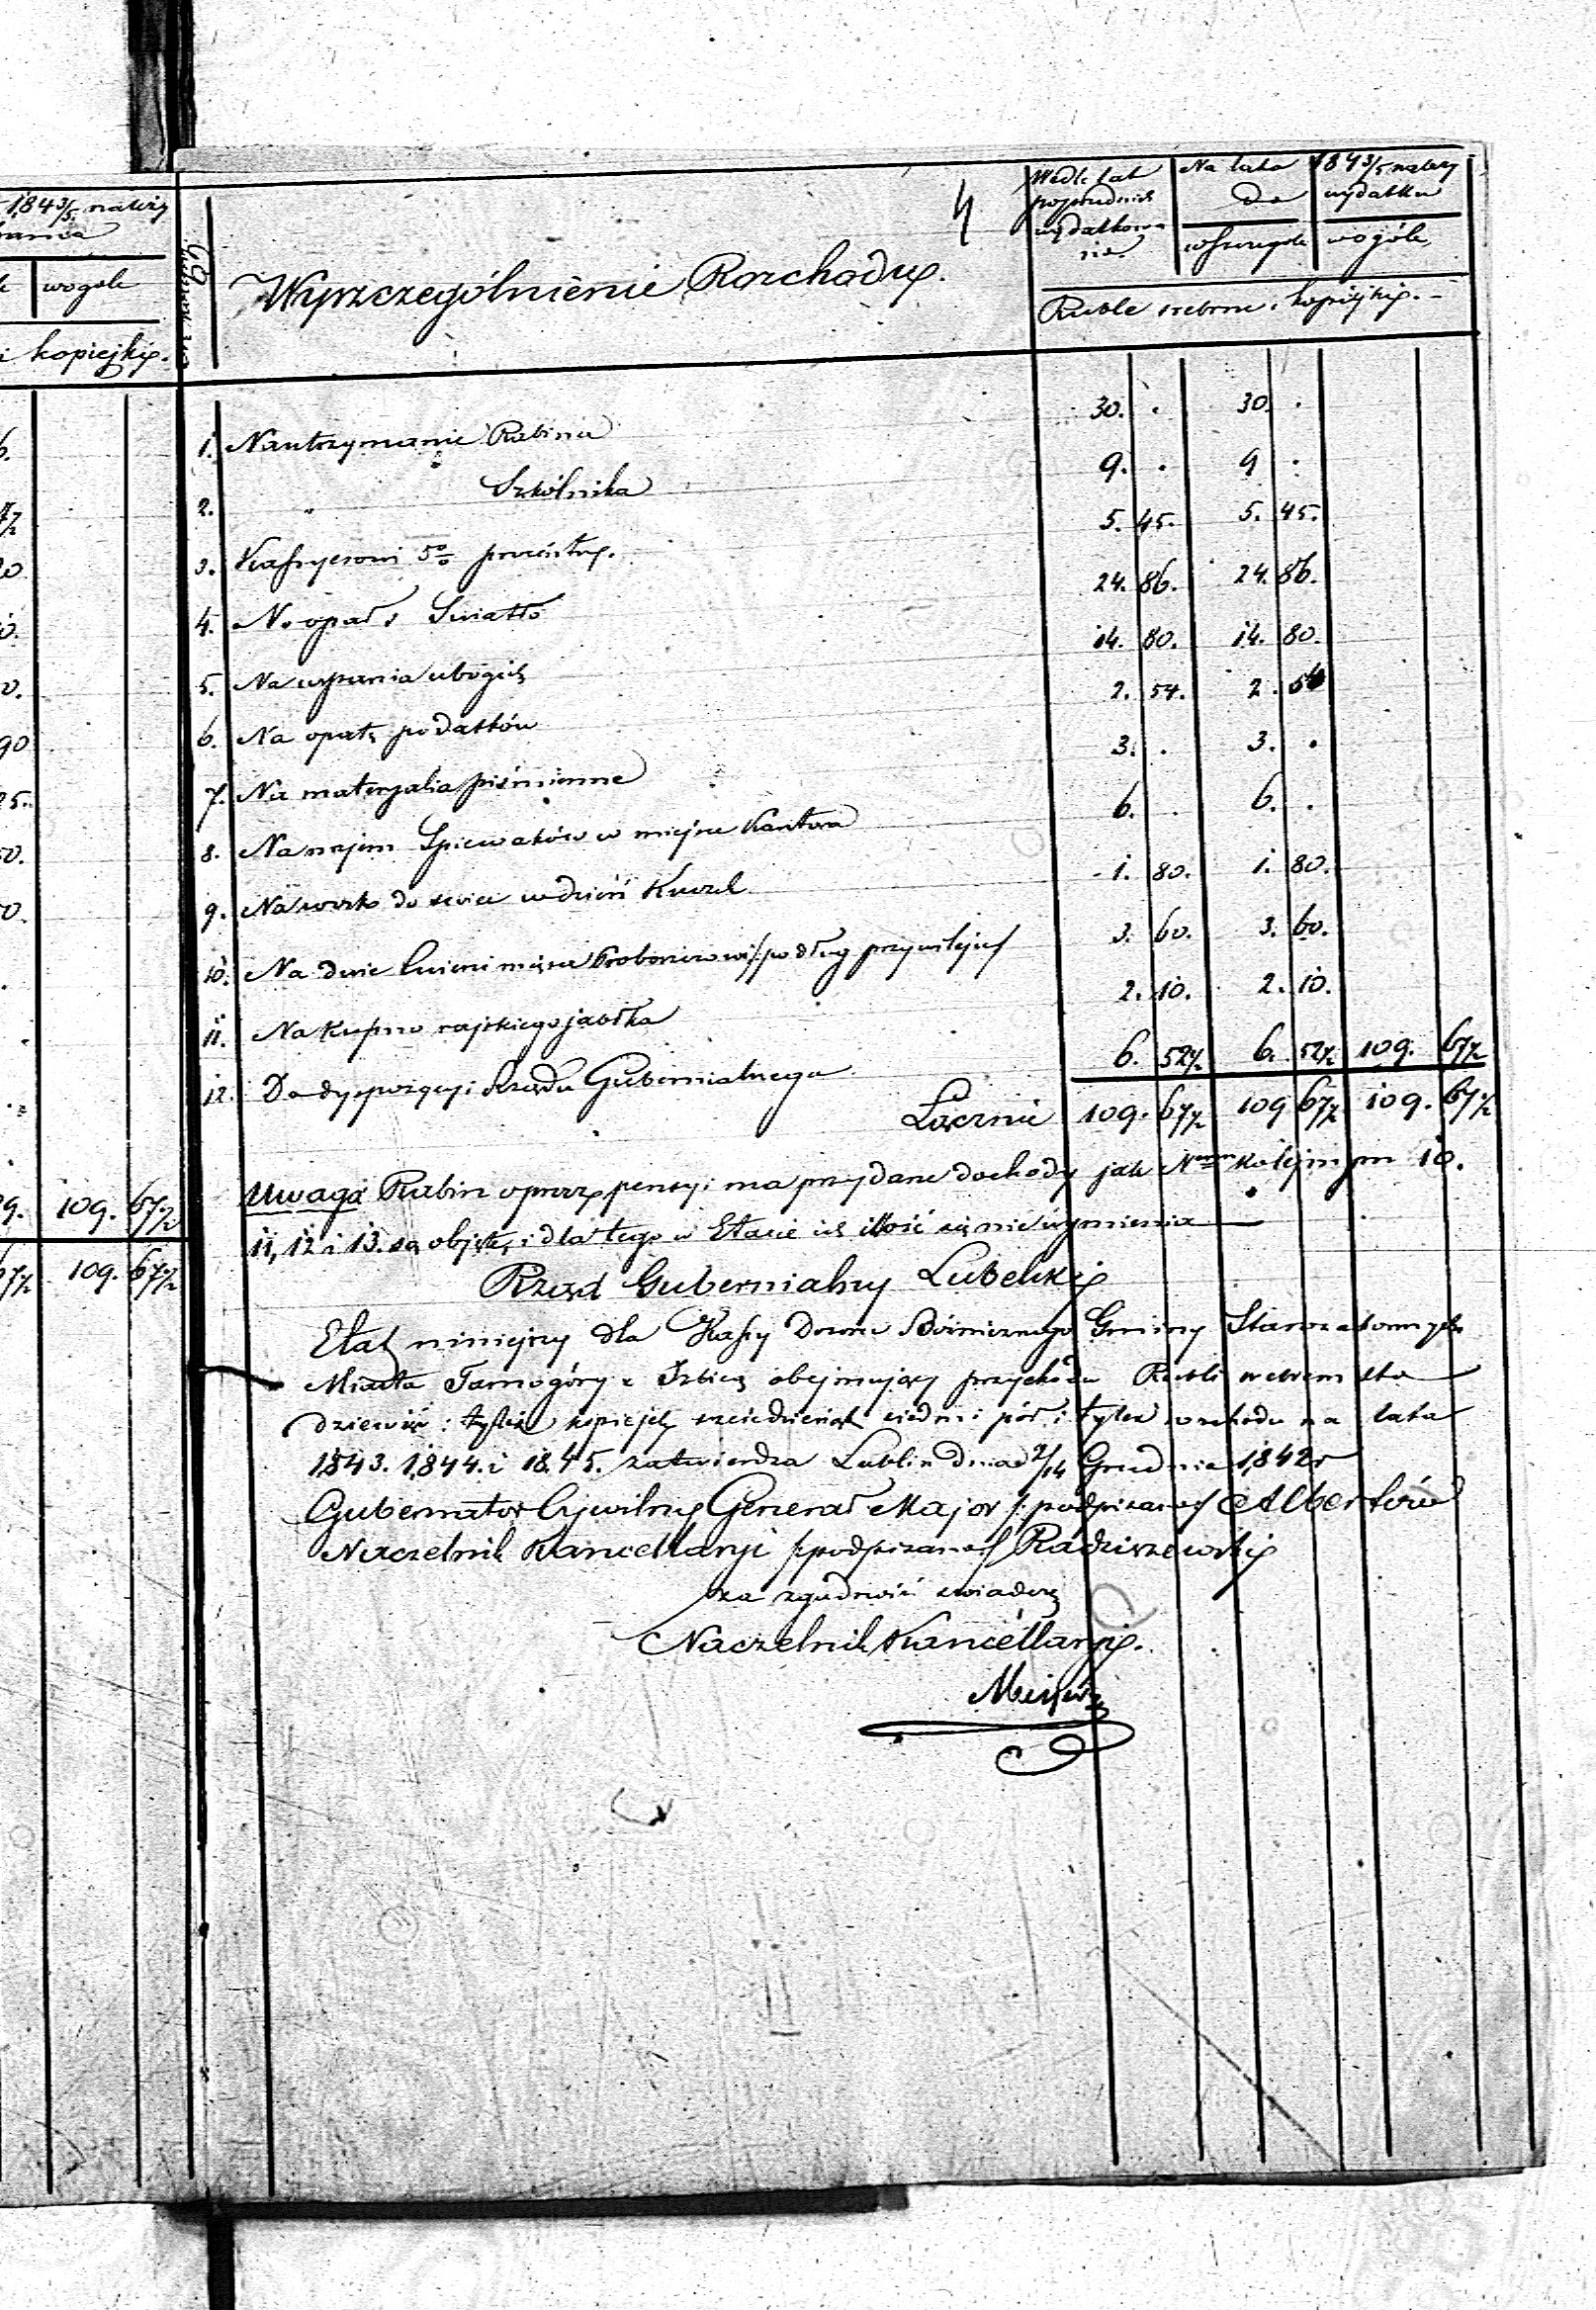 1843/5. należy
wogóle
i kopiejki.
90
109. 67½
109. 67½
4
Wyszczególnienie Rozchodu.
Wedle lat poprzednich wydatkowanie
Na lata 1843/5 należy
do wydatku
wszczególe wogóle
Ruble srebrne i kopiejki.
1. Na utrzymanie Rabina 30. . 30. .
2. " Szkólnika 9. . 9 .
3. Kassyerowi 5% 5. 45. 5. 45.
4. Na opał i Swiatło 24. 86. 24. 86.
5. Na wsparcia ubogich 14. 80. 14. 80.
6. Na opłatę podatków 2. 54. 2. 54
7. Na materyalia piśmienne 3. . 3. .
8. Na najem Spiewaków w miejsce Kantora 6. . 6. .
9. Na wosk do swiec w dzień Kuczek 1. 80. 1. 80.
10. Na dwie Proboszczowi /:podług przywileju:/ 3. 60. 3. 60.
11. Na Kupno rajskiego jabłka 2. 10. 2. 10.
12. Do dyspozycyi Rządu Gubernialnego 6. 52½ 6. 52½ 109. 67½
Łącznie 109. 67½ 109 67½ 109. 67½
Uwaga Rabin oprócz pensyi ma przydane dochody jak Nrem kolejnym 10.
11, 12 i 13. są objęte, i dla tego w Etacie ich ilość się nie wymienia
Rząd Gubernialny Lubelski
Etat niniejszy dla Kassy Dozoru Bożniczego Gminy Starozakonnych
Miasta Tarnogóry i Izbicy obejmujący przychodu Rubli srebrem sto
dziewięć i tyleż kopiejek sześćdziesiąt siedm i pół i tyleż rozchodu na lata
1843. 1844. i 1845. zatwierdza Lublin dnia 2/14 Grudnia 1842 r
Gubernator Cywilny Generał Major /:podpisano:/ Albertów
Naczelnik Kancellaryi /:podpisano:/ Radziszewski
za zgodność swiadczy
Naczelnik Kancellaryi.